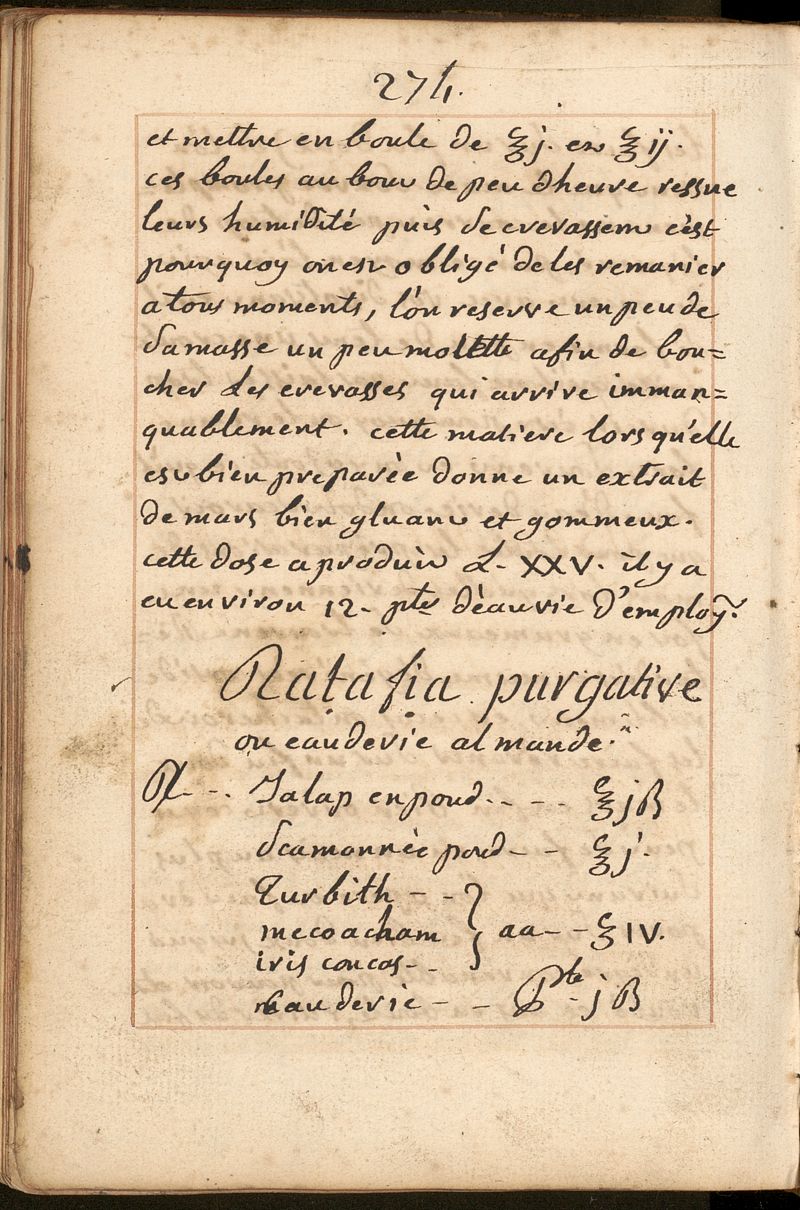 274.
et mettre en boule de ℥j. et ℥ij.
ces boules au bout de peu dheure ressue
leurs humidité puis se crevassent c'est
pourquoy on est obligé de les remanier
a tous moments, l'on reserve un peu de
sa masse un peu mollette afin de bou=
cher les crevasses qui arrive imman=
quablement. cette matiere lorsqu'elle
est bien preparée donne un extrait
de mars bien gluant et gommeux.
cette dose a produit L. XXV. il y a
eu environ 12. ptes d'eau vie d'employ.
Ratafia purgative
ou eau de vie almande.n
♃ -- Jalap en poud. - - - ℥jß
Scamonnée poud - - ℥j.
Turbith - - }
mecoacham } aa - - ℥IV.
iris concas - - }
eau de vie - - Pte - jß